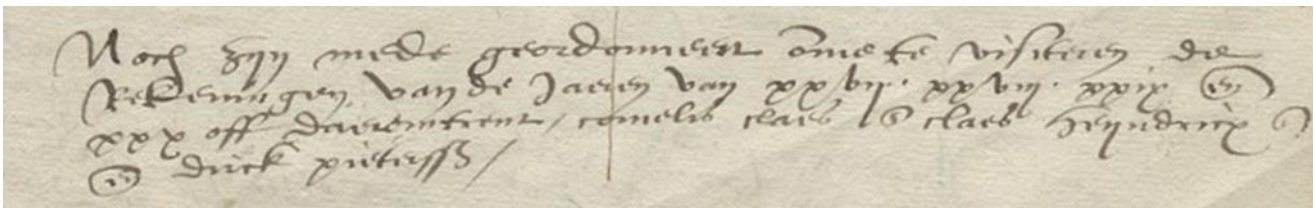 Noch zijn mede geordonneert ome te visiteren de
Rekeningen van de Jaeren van xxvij. xxviij. xxix en
xxx off daeromtrent / cornelis claes claes heyndricx
en dirck pieterss /